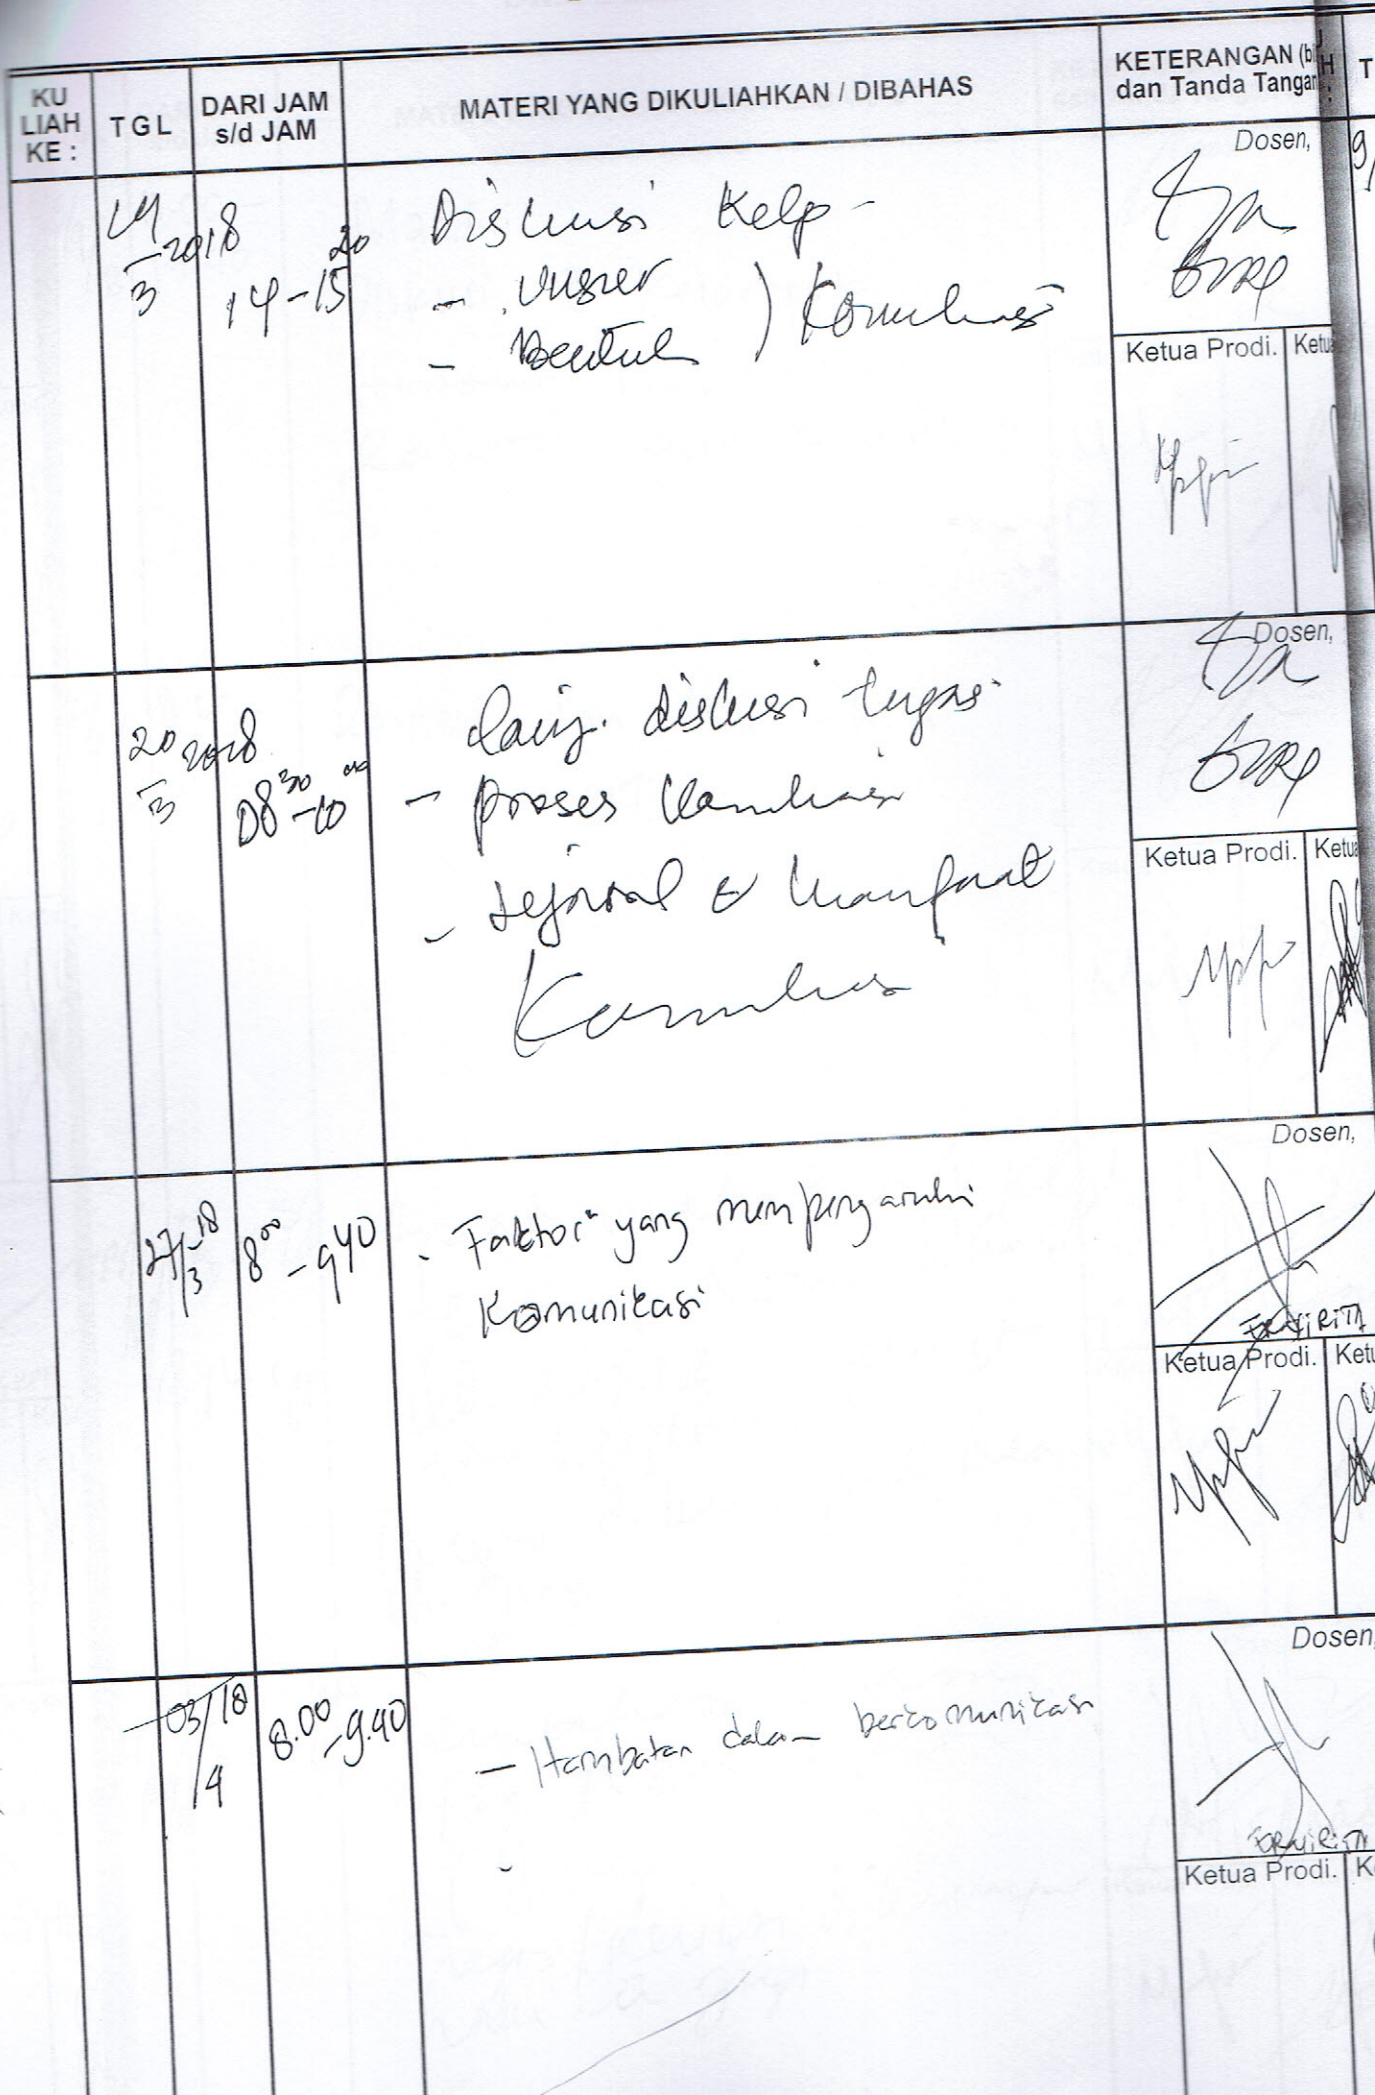 KU LIAH KE :
TGL
DARI JAM s/d JAM
MATERI YANG DIKULIAHKAN / DIBAHAS
KETERANGAN (bi
dan Tanda Tangan
T
Dosen,
9/
14/3 2018
14 - 15 20
Diskusi Kelp -
- unsur
- Bentuk ) Komunikasi
Ketua Prodi.
Ketua
Dosen,
20/3 2018
08 30 - 10 00
Lanj. diskusi tugas
- proses Komunikasi
- & Manfaat
Komunikasi
Ketua Prodi.
Ketua
Dosen,
27/3 - 18
8 00 - 9 40
- Faktor" yang mempengaruhi
Komunikasi
ERNIRITA
Ketua Prodi.
Ketu
Dosen,
03/4 18
8.00 - 9.40
- Hambatan dalam berkomunikasi
-
ERNIRITA
Ketua Prodi.
K